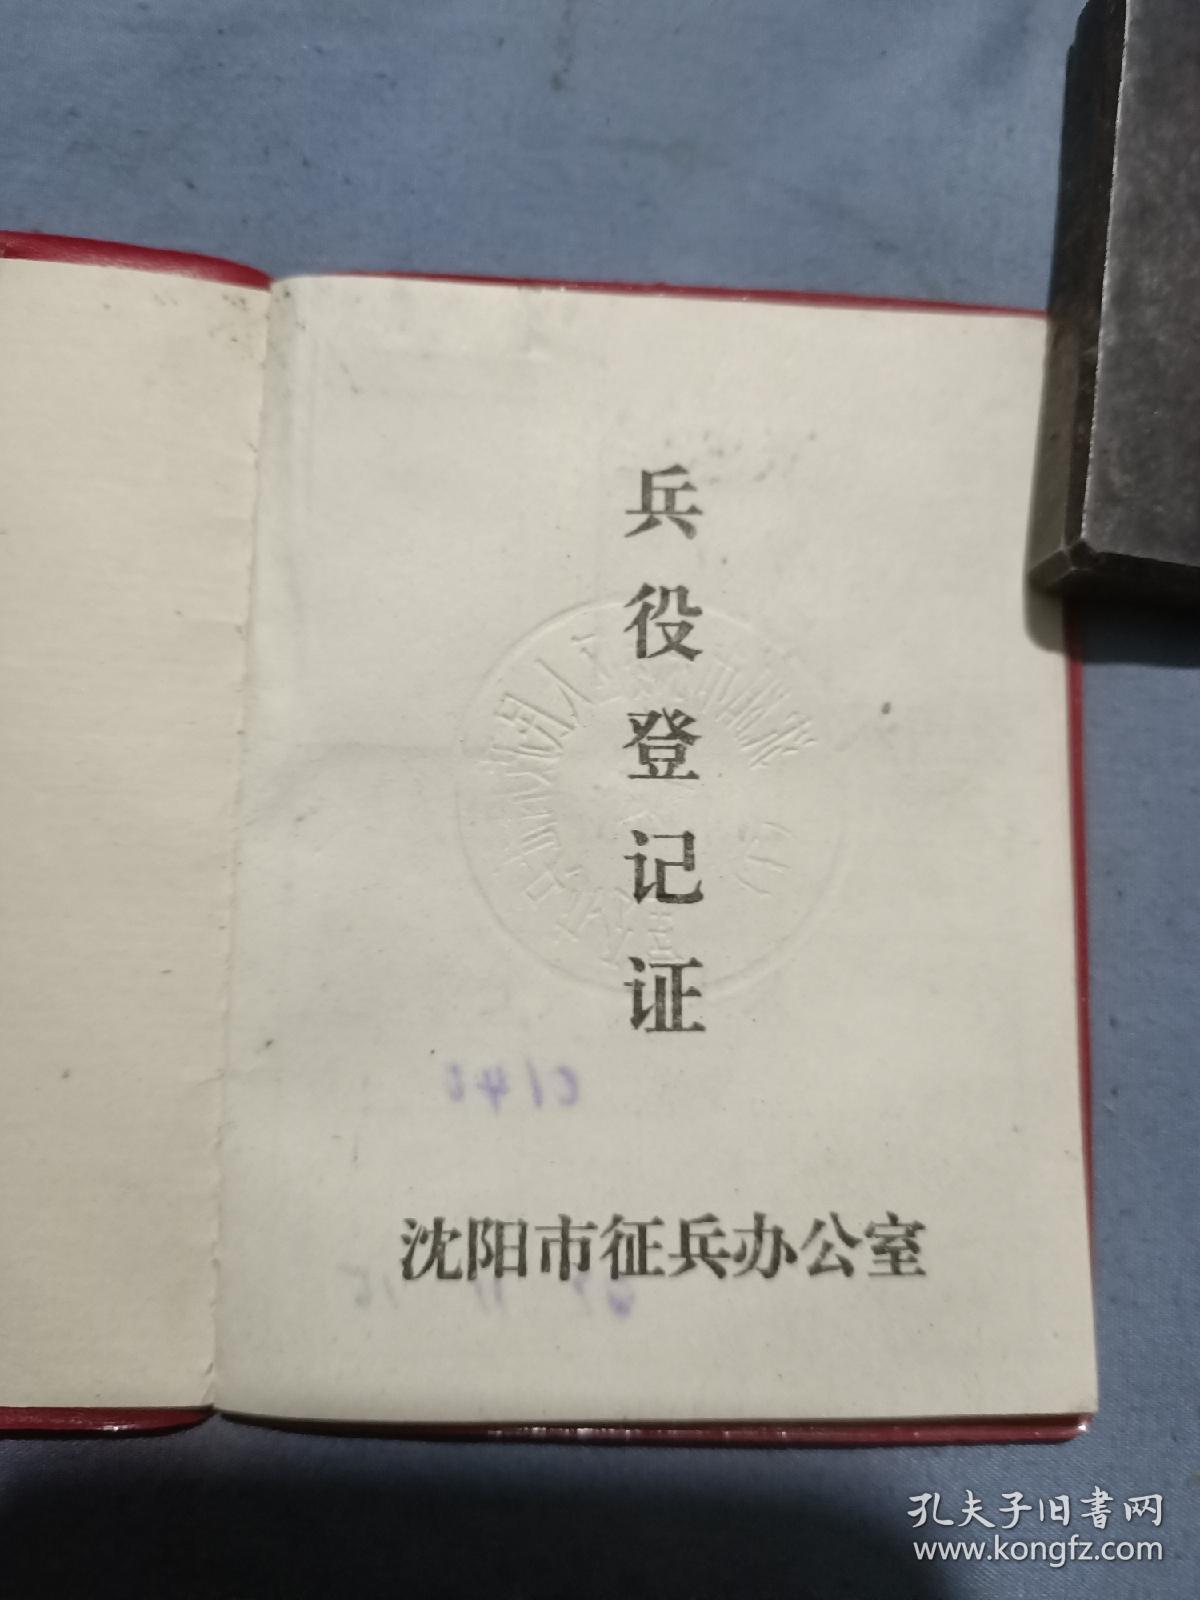 兵役登记证
沈阳市征兵办公室
孔夫子旧书网
www.kongfz.com